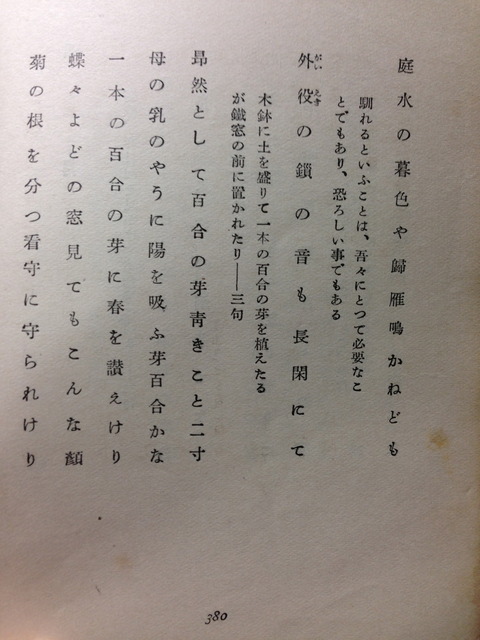 庭水の暮色や歸雁鳴かねども
馴れるといふことは、吾々にとつて必要なこ
とでもあり、恐ろしい事でもある
外役の鎖の音も長閑にて
がいえき
木鉢に土を盛りて一本の百合の芽を植えたる
が鐵窓の前に置かれたり――三句
昻然として百合の芽靑きこと二寸
母の乳のやうに陽を吸ふ芽百合かな
一本の百合の芽に春を讃えけり
蝶々よどの窓見てもこんな顏
菊の根を分つ看守に守られけり
380